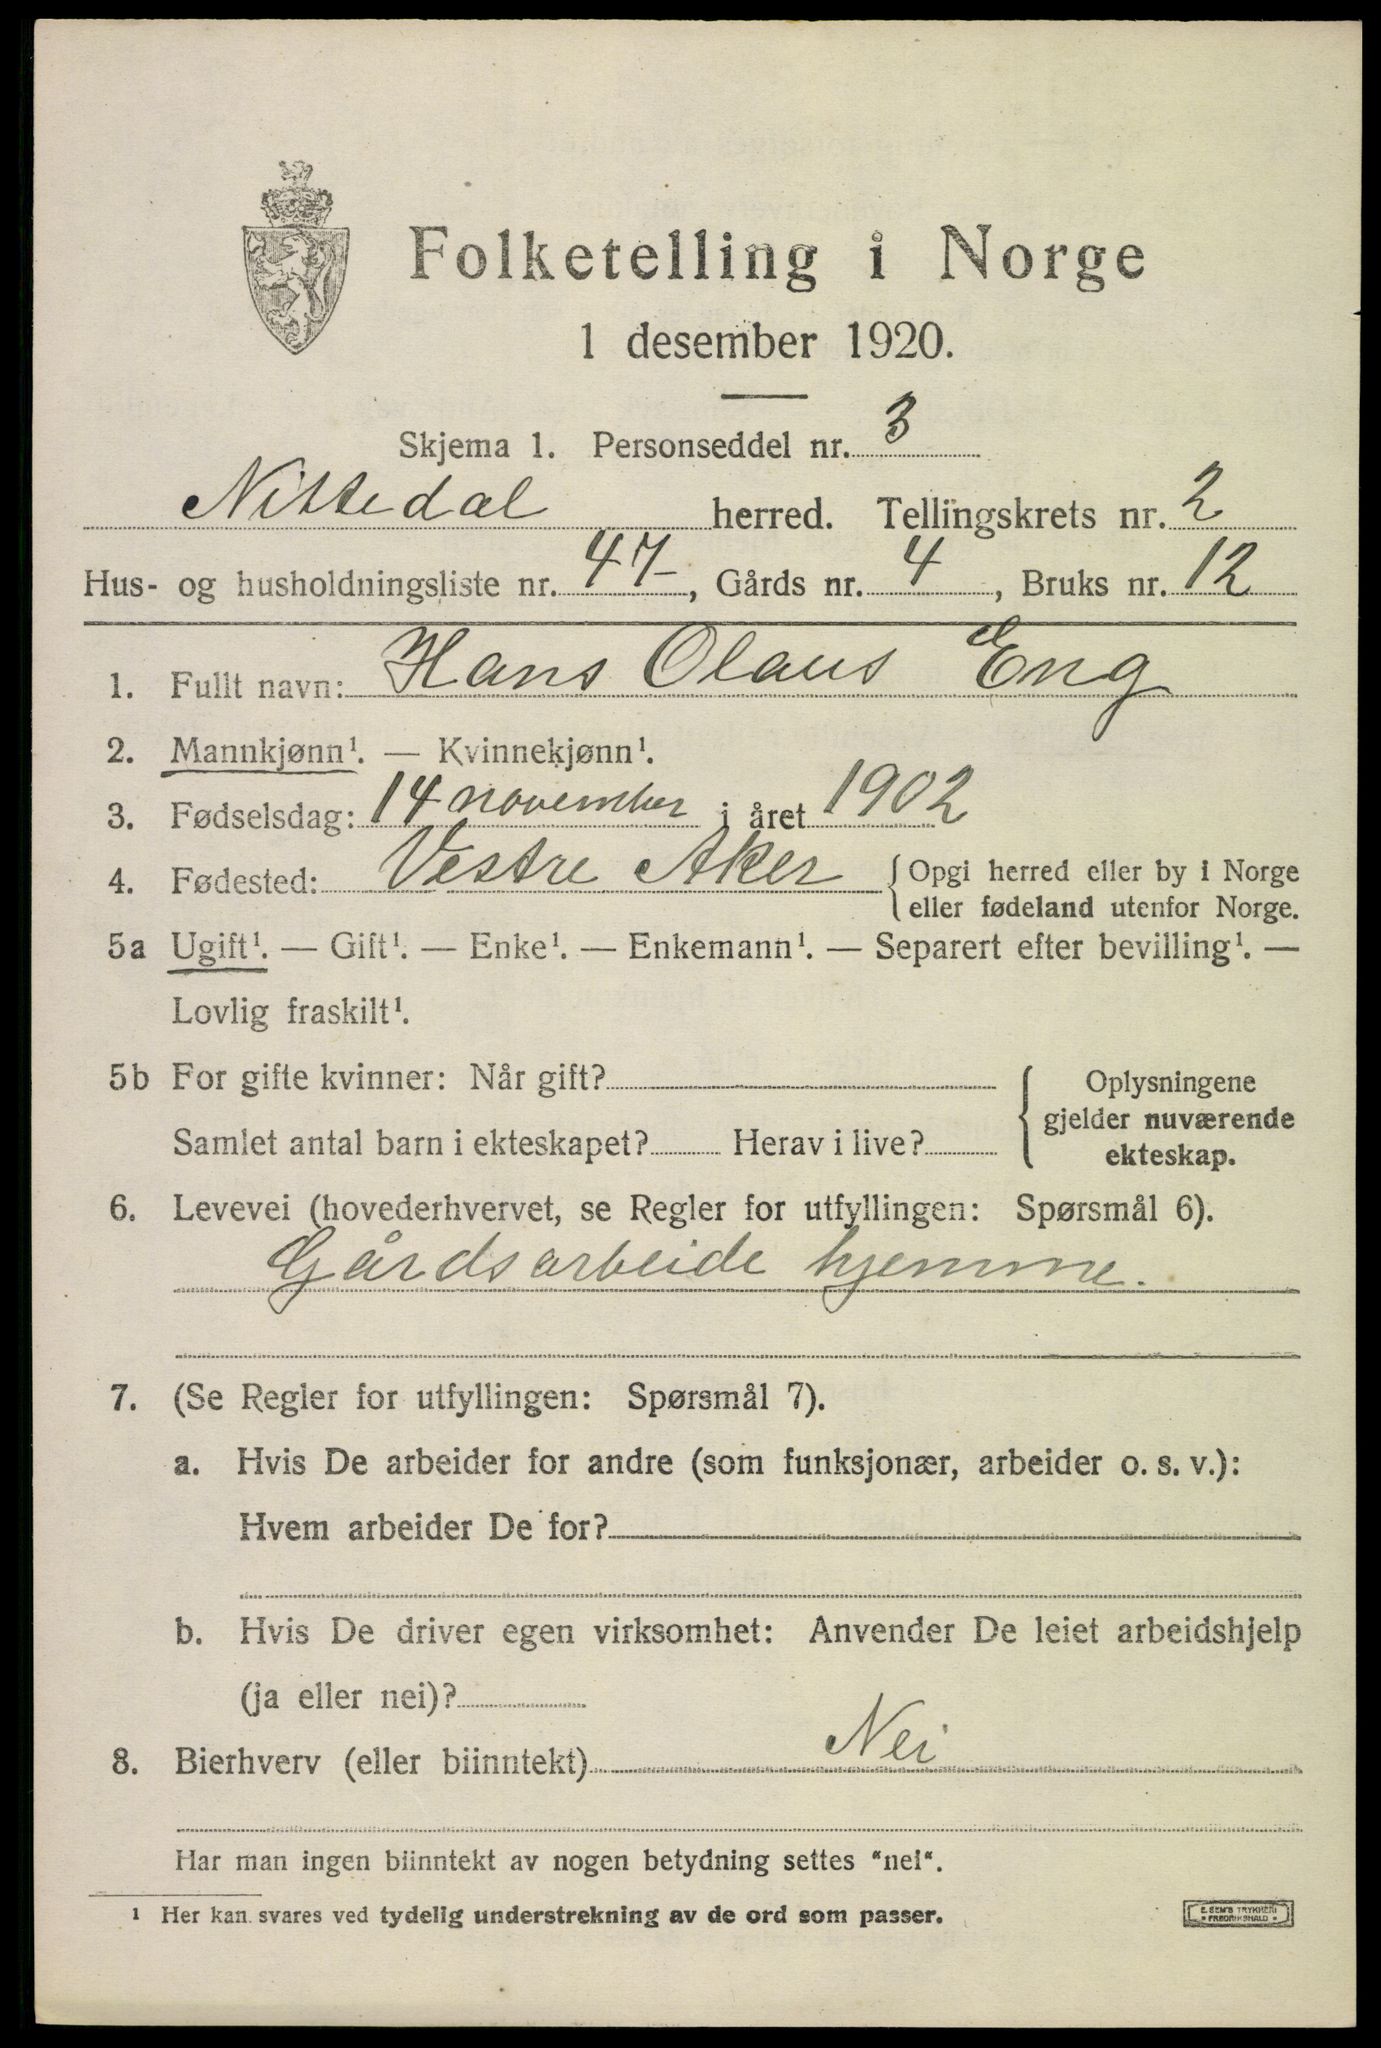 Folketelling i Norge
1 desember 1920.
Skjema 1. Personseddel nr. 3
Nittedal herred. Tellingskrets nr. 2
Hus- og husholdningsliste nr. 47, Gårds nr. 4, Bruks nr. 12
1. Fullt navn: Hans Olaus Eng
2. Mannkjønn¹. — Kvinnekjønn¹.
3. Fødselsdag: 14 november i året 1902
4. Fødested: Vestre Aker { Opgi herred eller by i Norge
eller fødeland utenfor Norge.
5a Ugift¹. — Gift¹. — Enke¹. — Enkemann¹. — Separert efter bevilling¹. —
Lovlig fraskilt¹.
5b For gifte kvinner: Når gift?
Samlet antal barn i ekteskapet? Herav i live?
{ Oplysningene
gjelder nuværende
ekteskap.
6. Levevei (hovederhvervet, se Regler for utfyllingen: Spørsmål 6).
Gårdsarbeide hjemme.
7. (Se Regler for utfyllingen: Spørsmål 7).
a. Hvis De arbeider for andre (som funksjonær, arbeider o. s. v.):
Hvem arbeider De for?
b. Hvis De driver egen virksomhet: Anvender De leiet arbeidshjelp
(ja eller nei)?
8. Bierhverv (eller biinntekt) Nei
Har man ingen biinntekt av nogen betydning settes "nei".
¹ Her kan svares ved tydelig understrekning av de ord som passer.
E. SEM'S TRYKKERI
• FREDRIKSHALD •